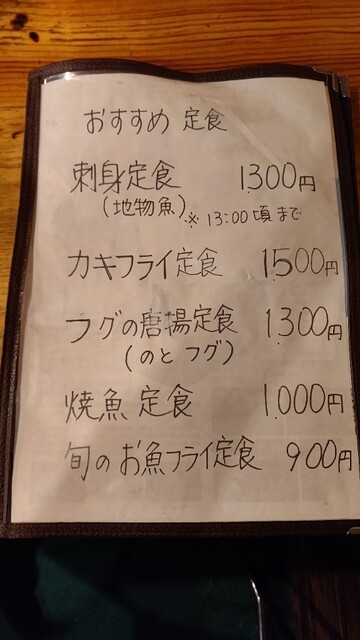 おすすめ 定食
刺身定食 1300円
(地物魚) ※ 13:00頃まで
カキフライ定食 1500円
フグの唐揚定食 1300円
(のと フグ)
焼魚 定食 1000円
旬のお魚フライ定食 900円